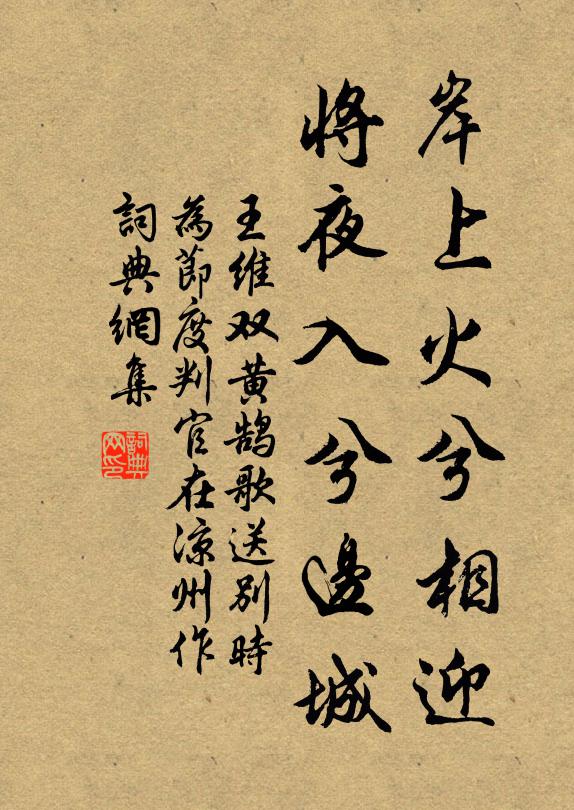 岸上火兮相迎
將夜入兮邊城
王維双黄鵠歌送别時
為節度判官在涼州作
詞典網集
詞典
网印